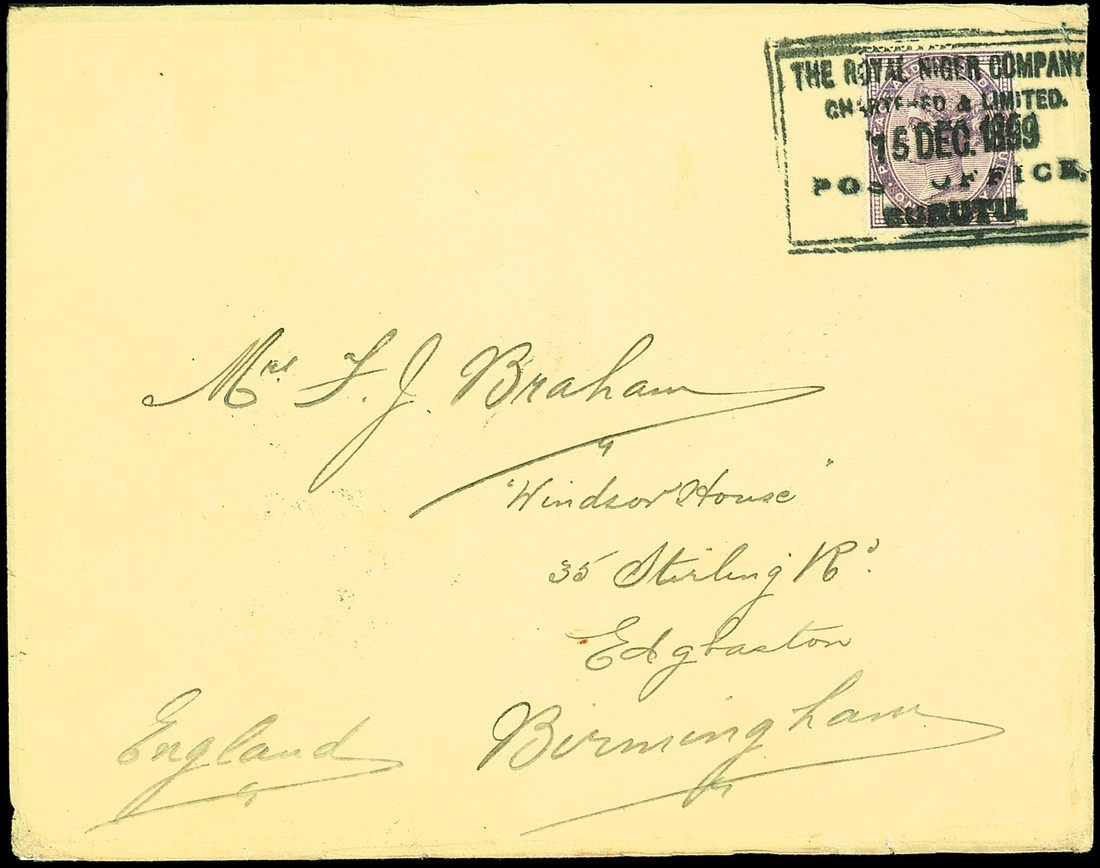 THE ROYAL NIGER COMPANY
CHARTERED & LIMITED.
15 DEC. 1899
POST OFFICE,
BURUTU.
Mrs. F. J. Braham
"Windsor House"
35 Stirling Rd.
Edgbaston
Birmingham
England